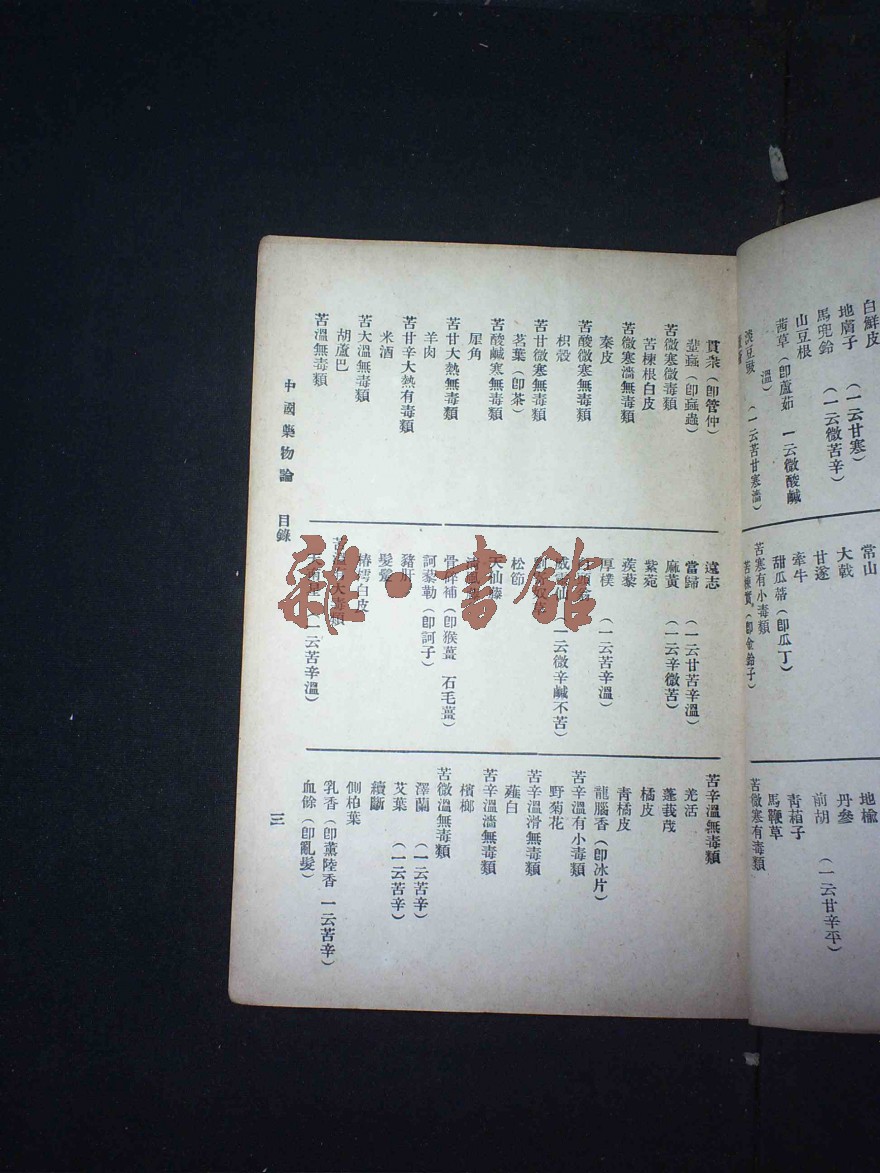 白鮮皮
地膚子（一云甘寒）
馬兜鈴（一云微苦辛）
山豆根
茜草（卽蘆茹　一云微酸鹹
溫）
淡豆豉（一云苦甘寒濇）
常山
大戟
甘遂
牽牛
甜瓜蒂（卽瓜丁）
苦寒有小毒類
苦楝實（卽金鈴子）
地榆
丹參
前胡（一云甘辛平）
青葙子
馬鞭草
苦微寒有毒類
貫衆（卽管仲）
蜚蝱（卽蝱蟲）
苦微寒微毒類
苦楝根白皮
苦微寒濇無毒類
秦皮
苦酸微寒無毒類
枳殼
苦甘微寒無毒類
茗葉（卽茶）
苦酸鹹寒無毒類
犀角
苦甘大熱無毒類
羊肉
苦甘辛大熱有毒類
米酒
苦大溫無毒類
胡蘆巴
苦溫無毒類
遠志
當歸（一云甘苦辛溫）
麻黃（一云辛微苦）
紫菀
蒺藜
厚樸（一云苦辛溫）
威靈仙（一云微辛鹹不苦）
松節
天仙藤
骨碎補（卽猴薑　石毛薑）
訶藜勒（卽訶子）
豬肝
髮髲
椿樗白皮
天南星（一云苦辛溫）
苦辛溫無毒類
羌活
蓬莪茂
橘皮
青橘皮
龍腦香（卽冰片）
苦辛溫有小毒類
野菊花
苦辛溫滑無毒類
薤白
苦辛溫濇無毒類
檳榔
苦微溫無毒類
澤蘭（一云苦辛）
艾葉（一云苦辛）
續斷
側柏葉
乳香（卽薰陸香　一云苦辛）
血餘（卽亂髮）
中國藥物論　目錄
三
雜·書館